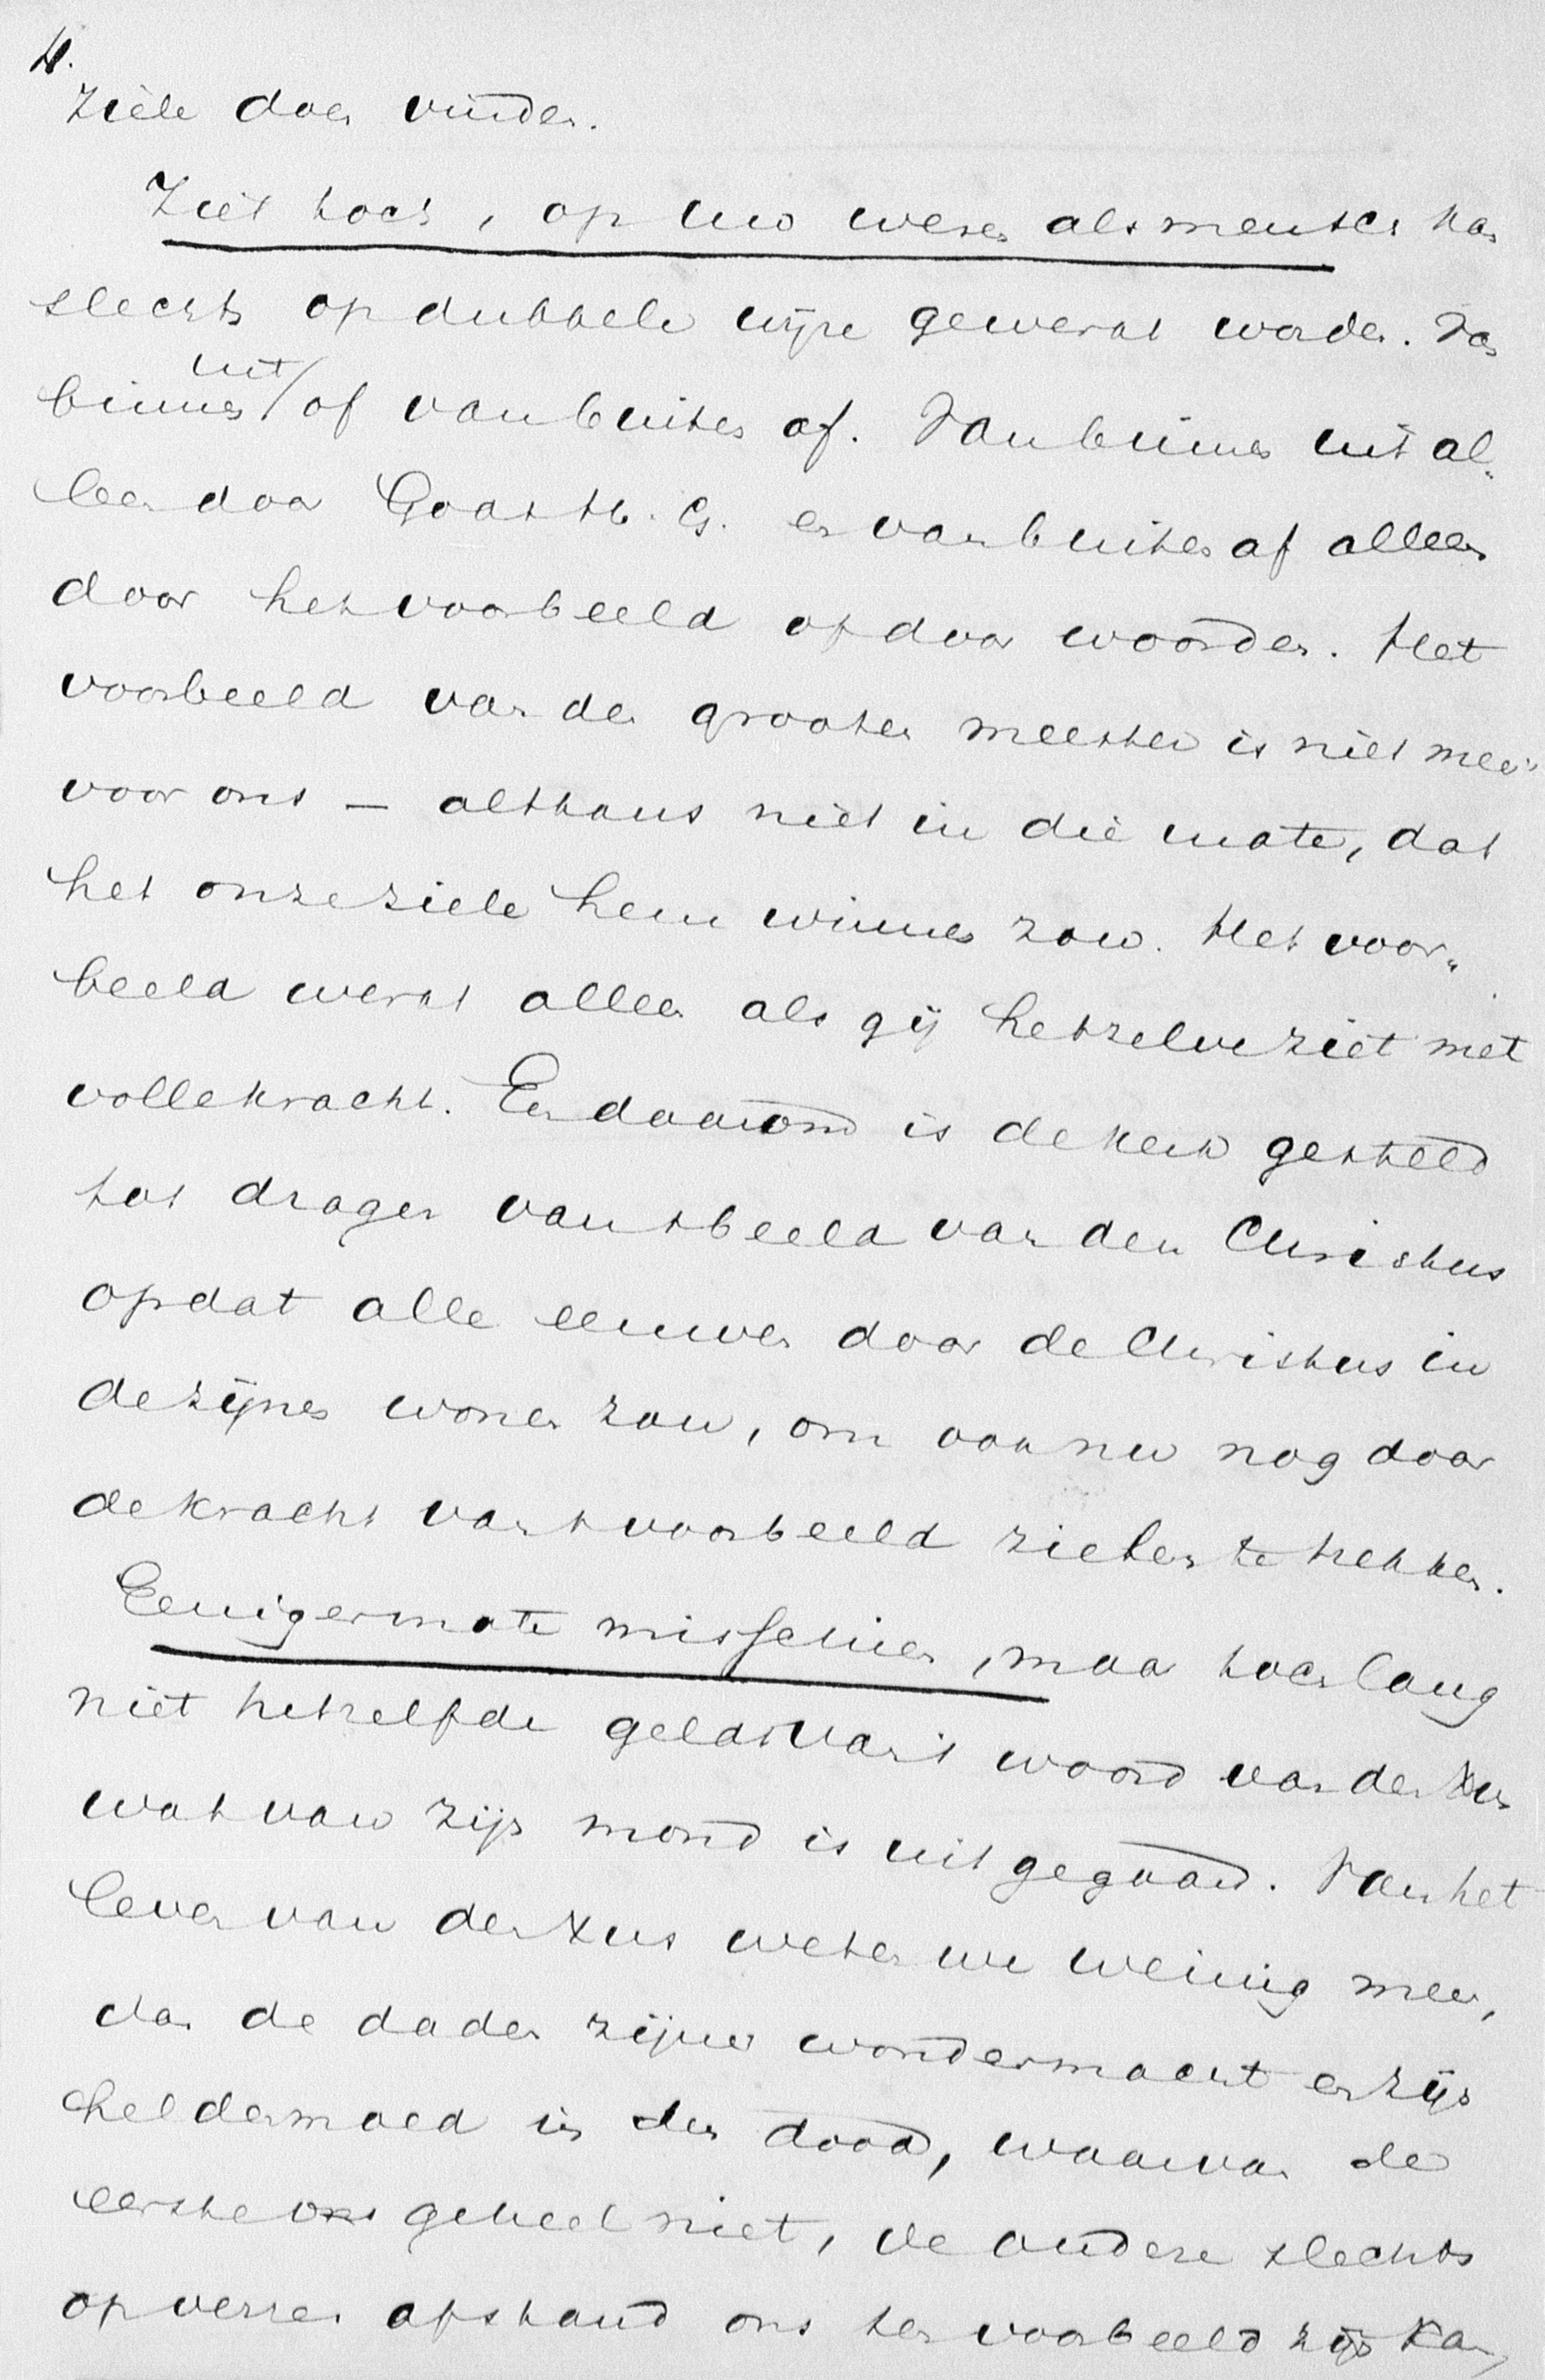 4.
ziele doen vinden.
Ziet toch, op uw wezen als mensch kan
slechts op dubbele wijze gewerkt worden. Van
binnen uit of van buiten af. Van binnen uit al-
leen door Gods H. G. en van buiten af alleen
door het voorbeeld of door woorden. Het
voorbeeld van den grooten meester is niet meer
voor ons – althans niet in die mate, dat
het onze ziele hem winnen zou. Het voor-
beeld werkt alleen als gij hetzelve ziet met
volle kracht. En daarom is de kerk gesteld
tot drager van 't beeld van den Christus
opdat alle eeuwen door de Christus in
de zijnen wonen zou, om ook nu nog door
de kracht van 't voorbeeld zielen te trekken.
Eenigermate misschien, maar toch lang
niet hetzelfde geldt van 't woord van den Xus
wat van zijn mond is uitgegaan. Van het
leven van den Xus weten we weinig meer,
dan de daden zijner wondermacht en zijn
heldenmoed in den dood, waarvan de
eerste ons geheel niet, de andere slechts
op verren afstand ons ten voorbeeld zijn kan,